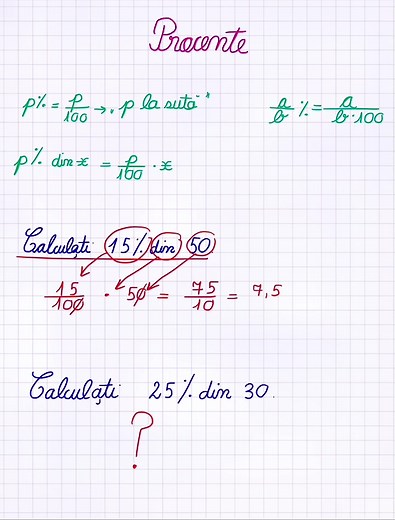 Procente
p% = p/100 → „p la sută" a/b % = a/b·100
p% din x = p/100 · x
Calculați 15% din 50
15/100 · 50 = 75/10 = 7,5
Calculați 25% din 30.
?